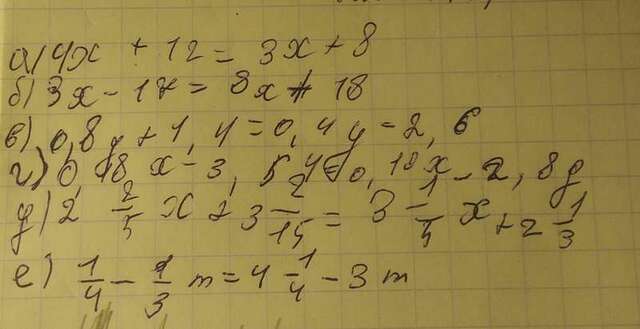 а) 4x + 12 = 3x + 8
б) 3x - 17 = 8x + 18
в) 0,8y + 1,4 = 0,4y - 2,6
г) 0,18x - 3,54 = 0,19x - 2,89
д) 2 2/5 x + 3 2/15 = 3 1/5 x + 2 1/3
е) 1/4 - 1/3 m = 4 1/4 - 3m